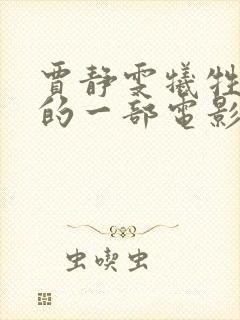 賈靜雯犧牲
的一部電影
虫喫虫